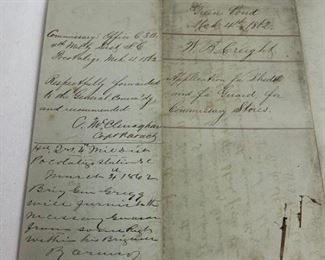 Commissary Office C.S.A.
4th Mility Dist S.C.
Pocotaligo Mch 11 1862
Respectfully forwarded
to the General Comdg
and recommended
C. McClenaghan
Capt &
Hd Qrs 4 Mil Dist
Pocotaligo Station S.C
March 1862
Brig Gen Gregg
will furnish the
necessary
from some Regt
within his Brigade
By
Green Pond
Mch 4th 1862
W. B. Creight
Application for
and for Guard for
Commissary Stores.